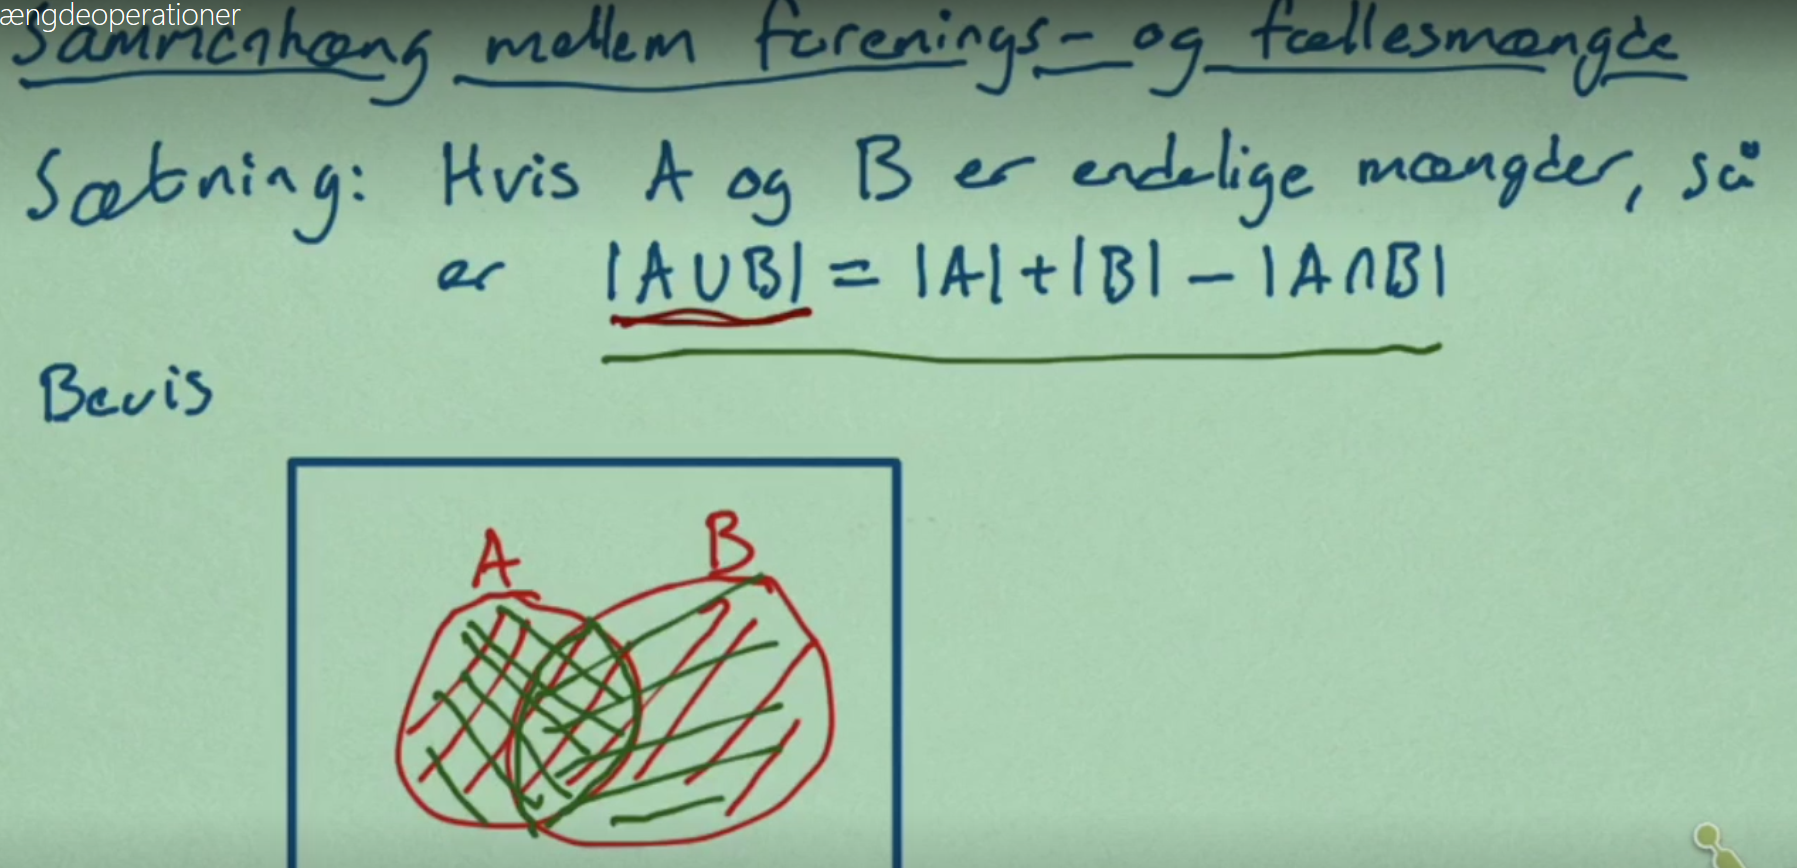 ængdeoperationer
Sammenhæng mellem forenings- og fællesmængde
Sætning: Hvis A og B er endelige mængder, så
er |A∪B| = |A|+|B| - |A∩B|
Bevis
A B